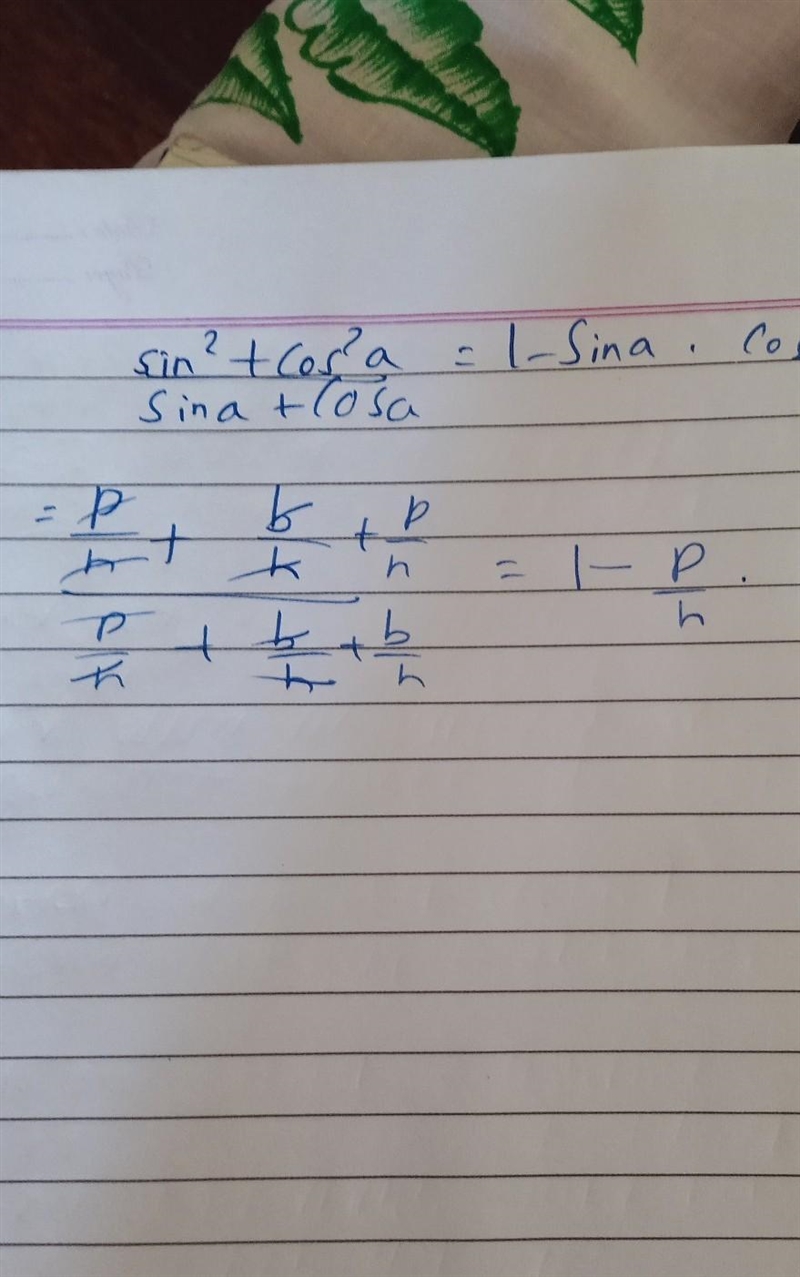 sin² + cos²a = 1 - Sina . Cos
Sina + Cosa
= p/h + b/h + p/h = 1 - p/h .
p/h + b/h + b/h